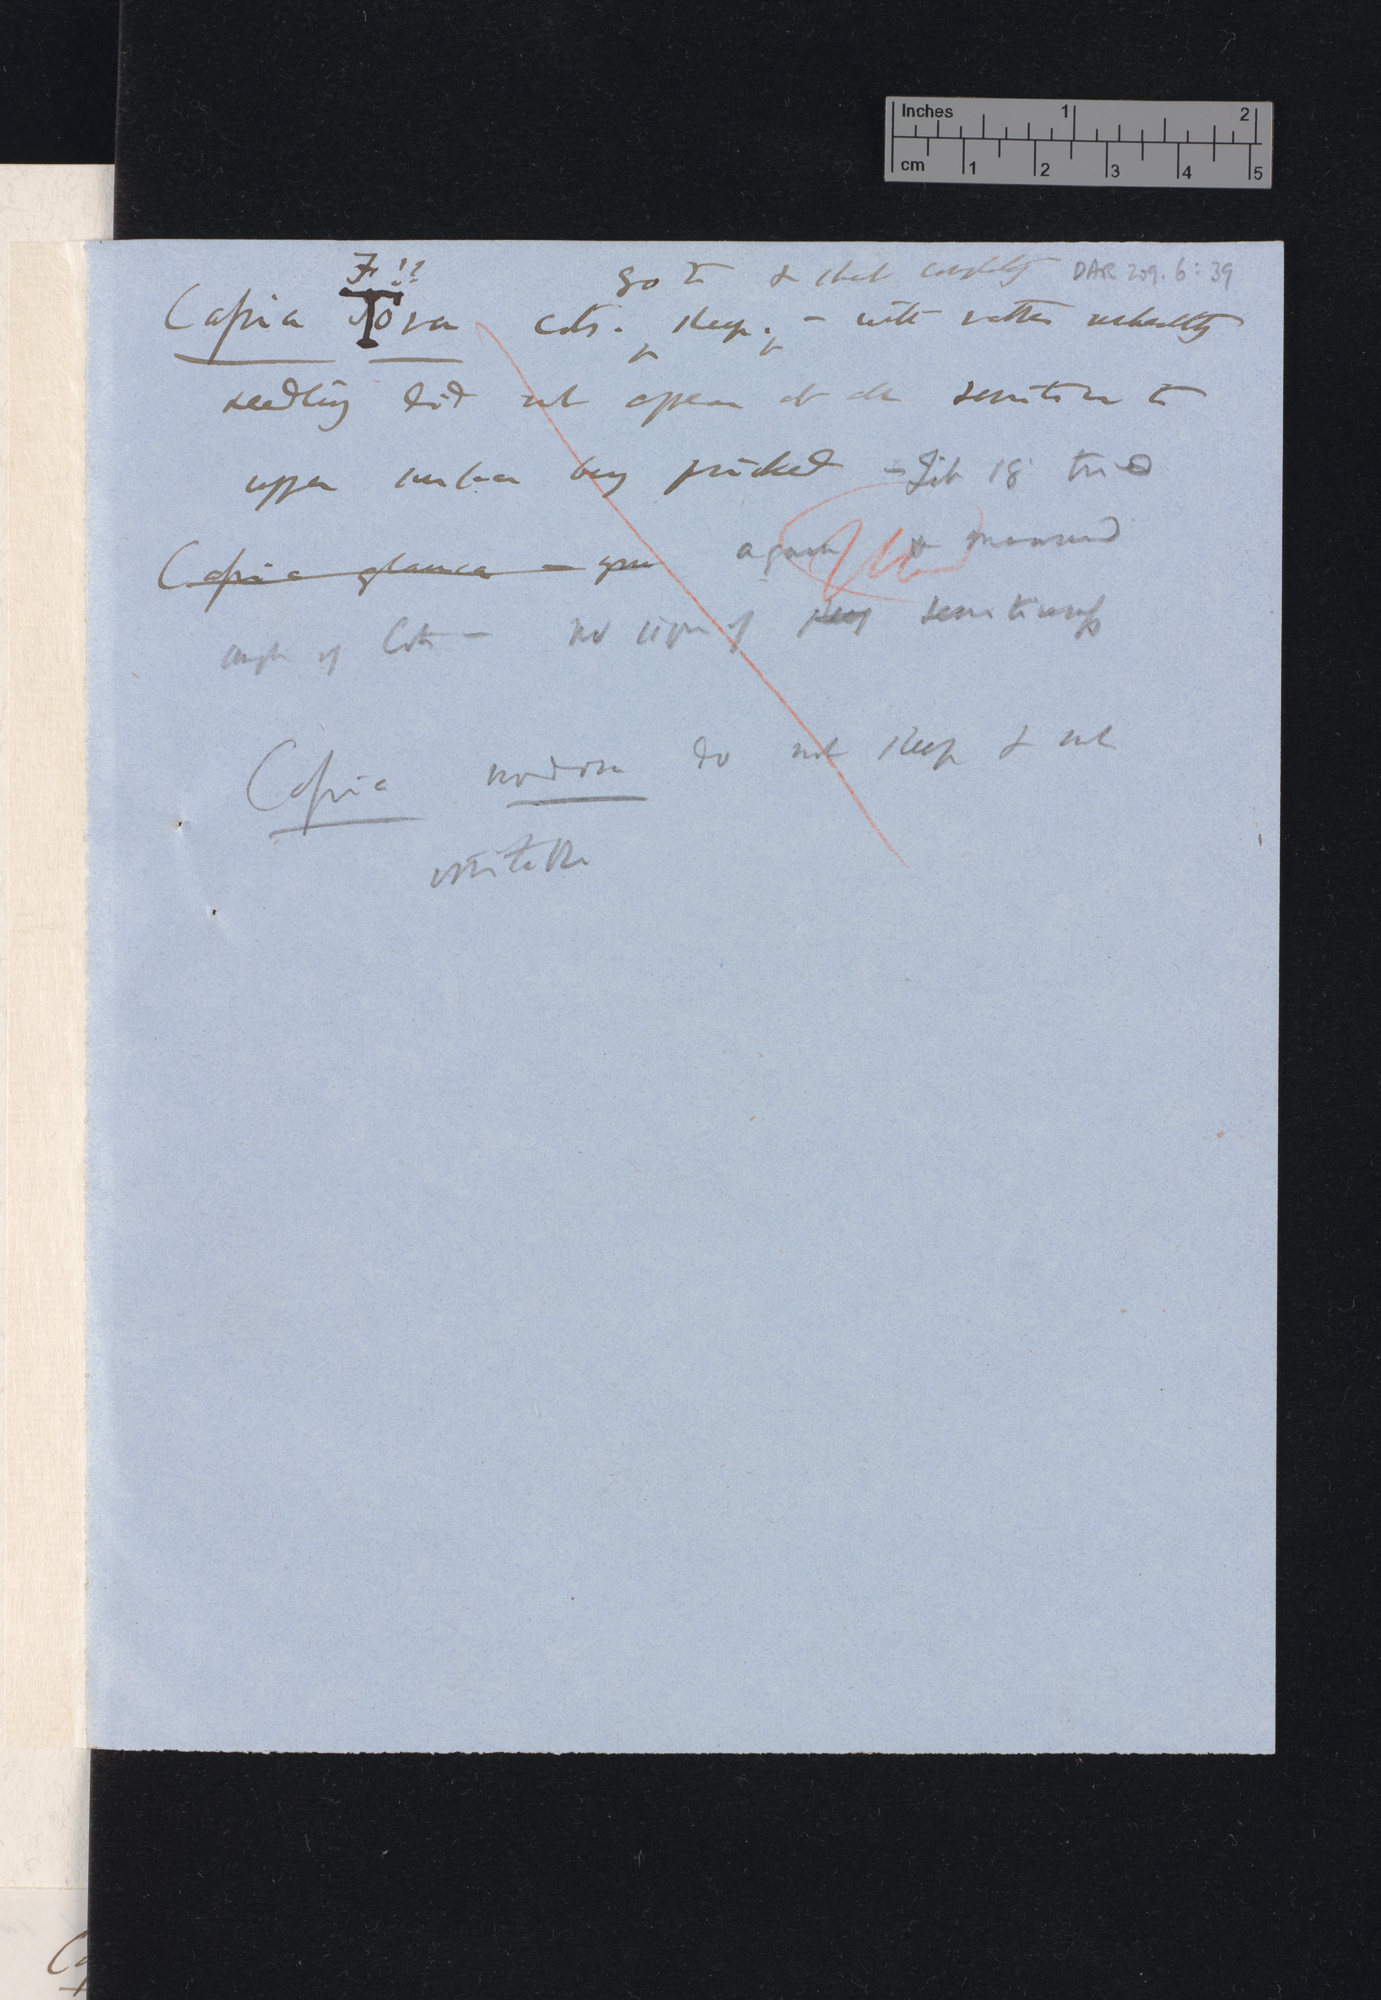 Inches 1 2
cm 1 2 3 4 5
F!?
go to & shut completely DAR 209.6:39
Cassia Tora cots. sleep. — with rather unhealthy
seedling did not appear at all sensitive to
upper surface being pricked — Feb 18 tried
Cassia glauca —
again & measured
angle of Cots — no sign of sensitiveness
Cassia nodosa do not sleep & not